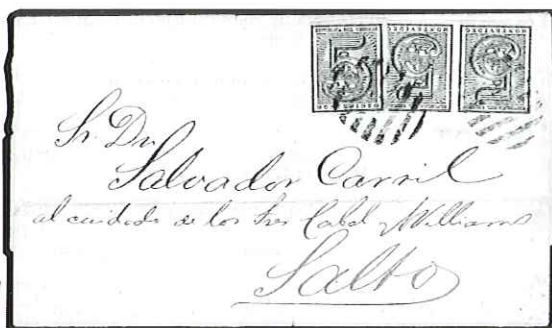 Sr. Dn
Salvador Carril
al cuidado de los Sres Cabal y Williams
Salto